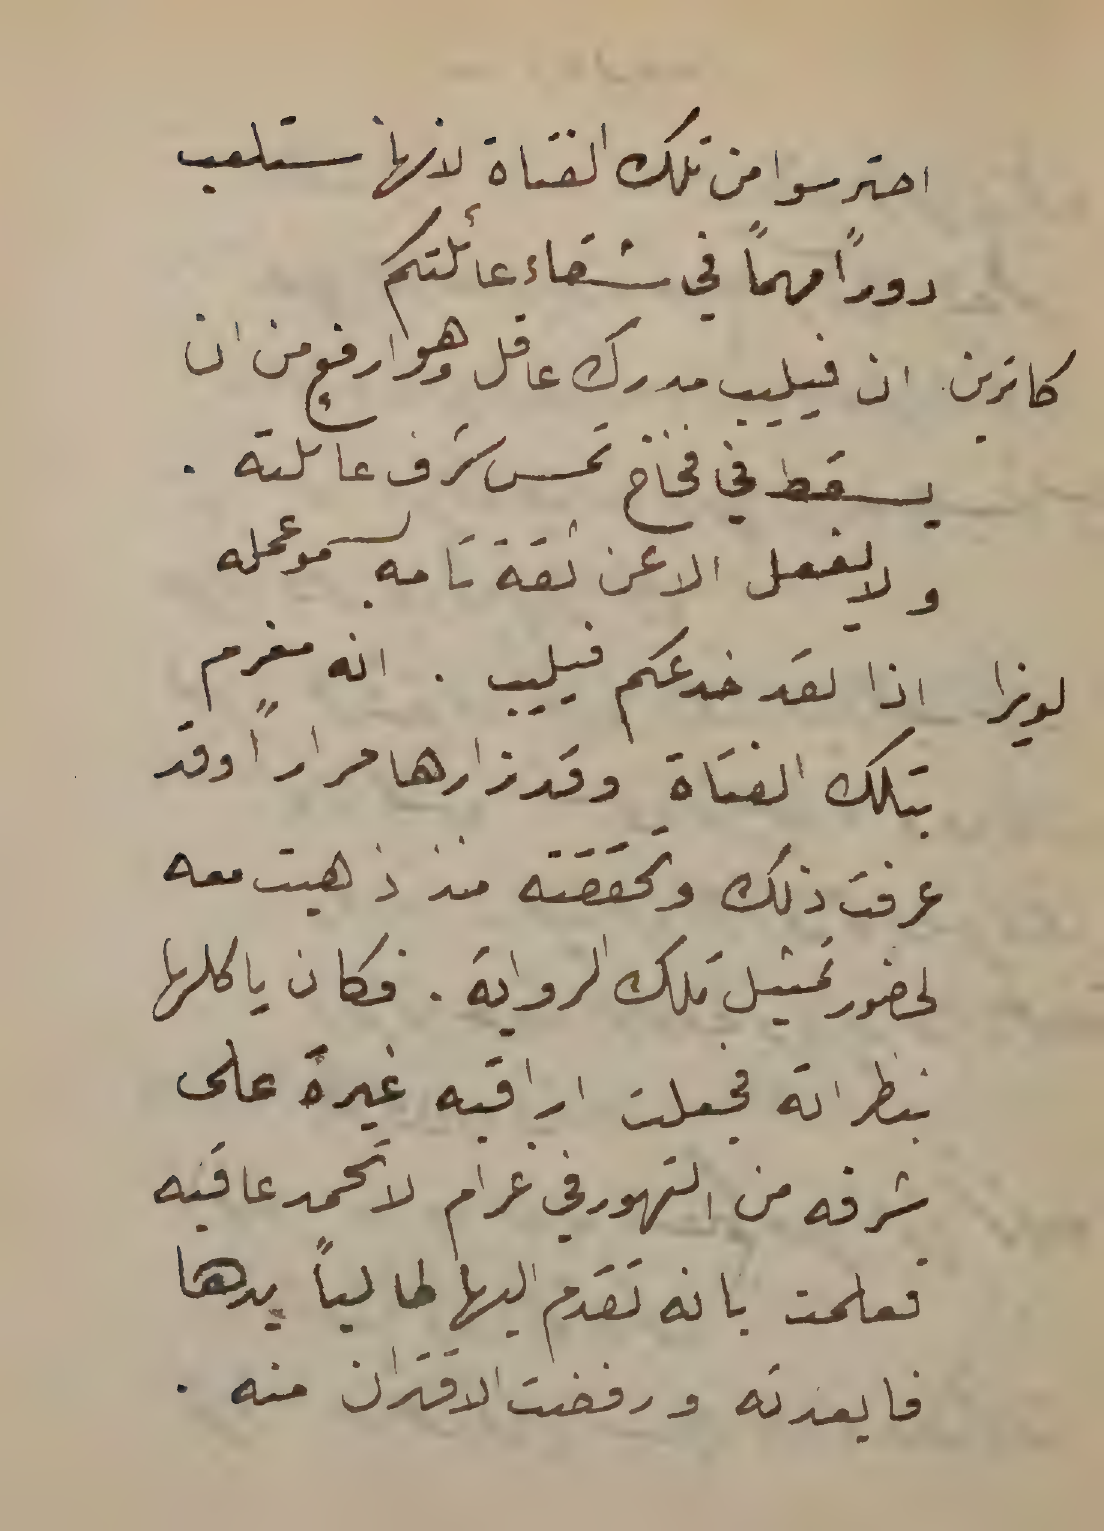 احترسوا من تلك الفتاة لانها ستلعب
دوراً مهماً في شقاء عائلتكم
كاترين ان فيليب مدرك عاقل وهو ارفع من ان
يسقط في فخاخ تمس شرف عائلته .
ولا يفعل الا عن ثقة تامه بسمو عمله
لويزا اذا لقد خدعكم فيليب . انه مغرم
بتلك الفتاة وقد زارها مراراً وقد
عرفت ذلك وتحققته منذ ذهبت معه
لحضور تمثيل تلك الرواية . فكان ياكلها
بنظراته فجعلت اراقبه غيرة على
شرفه من التهور في غرام لا تحمد عاقبته
فعلمت بانه تقدم اليها طالباً يدها
فابعدته ورفضت الاقتران منه .